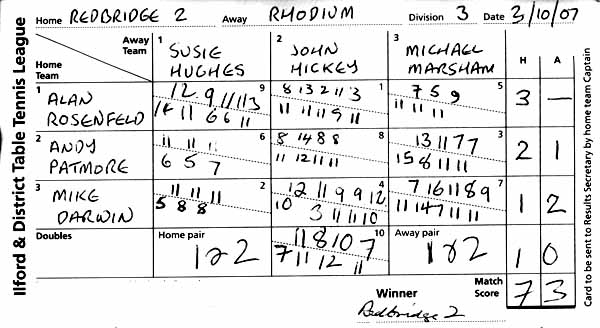 Ilford & District Table Tennis League
Home REDBRIDGE 2 Away RHODIUM Division 3 Date 3/10/07
Away Team
Home Team
1 SUSIE HUGHES
2 JOHN HICKEY
3 MICHAEL MARSHAM
H A
1 ALAN ROSENFELD
9 12 9 11 11 13
14 11 6 6 11
1 8 13 2 11 3
11 11 11 9 11
5 7 5 9
11 11 11
3 —
2 ANDY PATMORE
6 11 11
6 5 7
8 8 14 8 8
11 12 11 11
3 13 11 7 7
15 8 11 11
2 1
3 MIKE DARWIN
2 11 11 11
5 8 8
4 12 11 9 9 12
10 3 11 11 10
7 7 16 11 8 9
11 14 7 11 11
1 2
Doubles
Home pair
1 & 2
10 11 8 10 7
7 11 12 11
Away pair
1 & 2
1 0
Winner Redbridge 2
Match Score 7 3
Card to be sent to Results Secretary by home team Captain